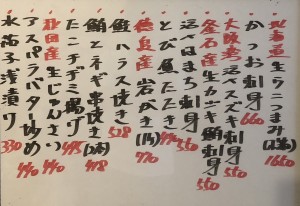 北海道産生うにつまみ 1650
かつお刺身 660
大阪湾活〆スズキ刺身 550
釜石産生 刺身 550
活〆はまち刺身 550
とび魚たたき
徳島産岩がき(1ヶ) 770
鮭ハラス焼き 528
鮪とネギ串焼き(2本) 418
たこチヂミ揚げ 495
秋田産生じゅんさい 440
アスパラバター炒め 440
水茄子浅漬け 330